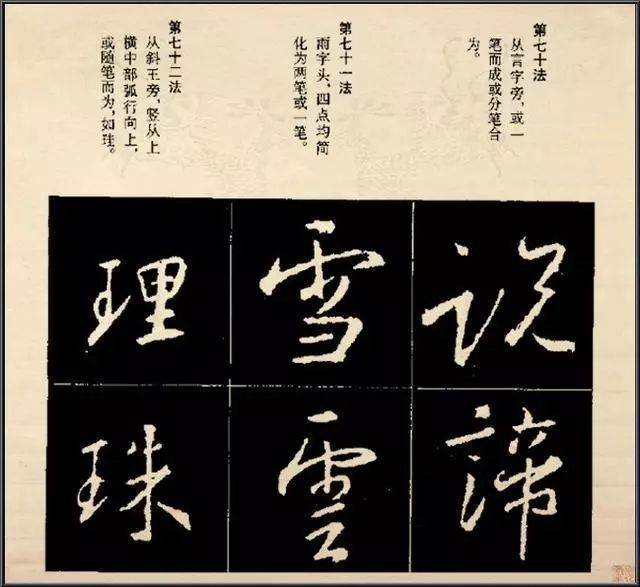 第七十法
从言字旁，或一
笔而成或分笔合
为。
第七十一法
雨字头，四点均简
化为两笔或一笔。
第七十二法
从斜王旁，竖从上
横中部弧行向上，
或随笔而为，如珪。
说
諦
雪
雲
理
珠